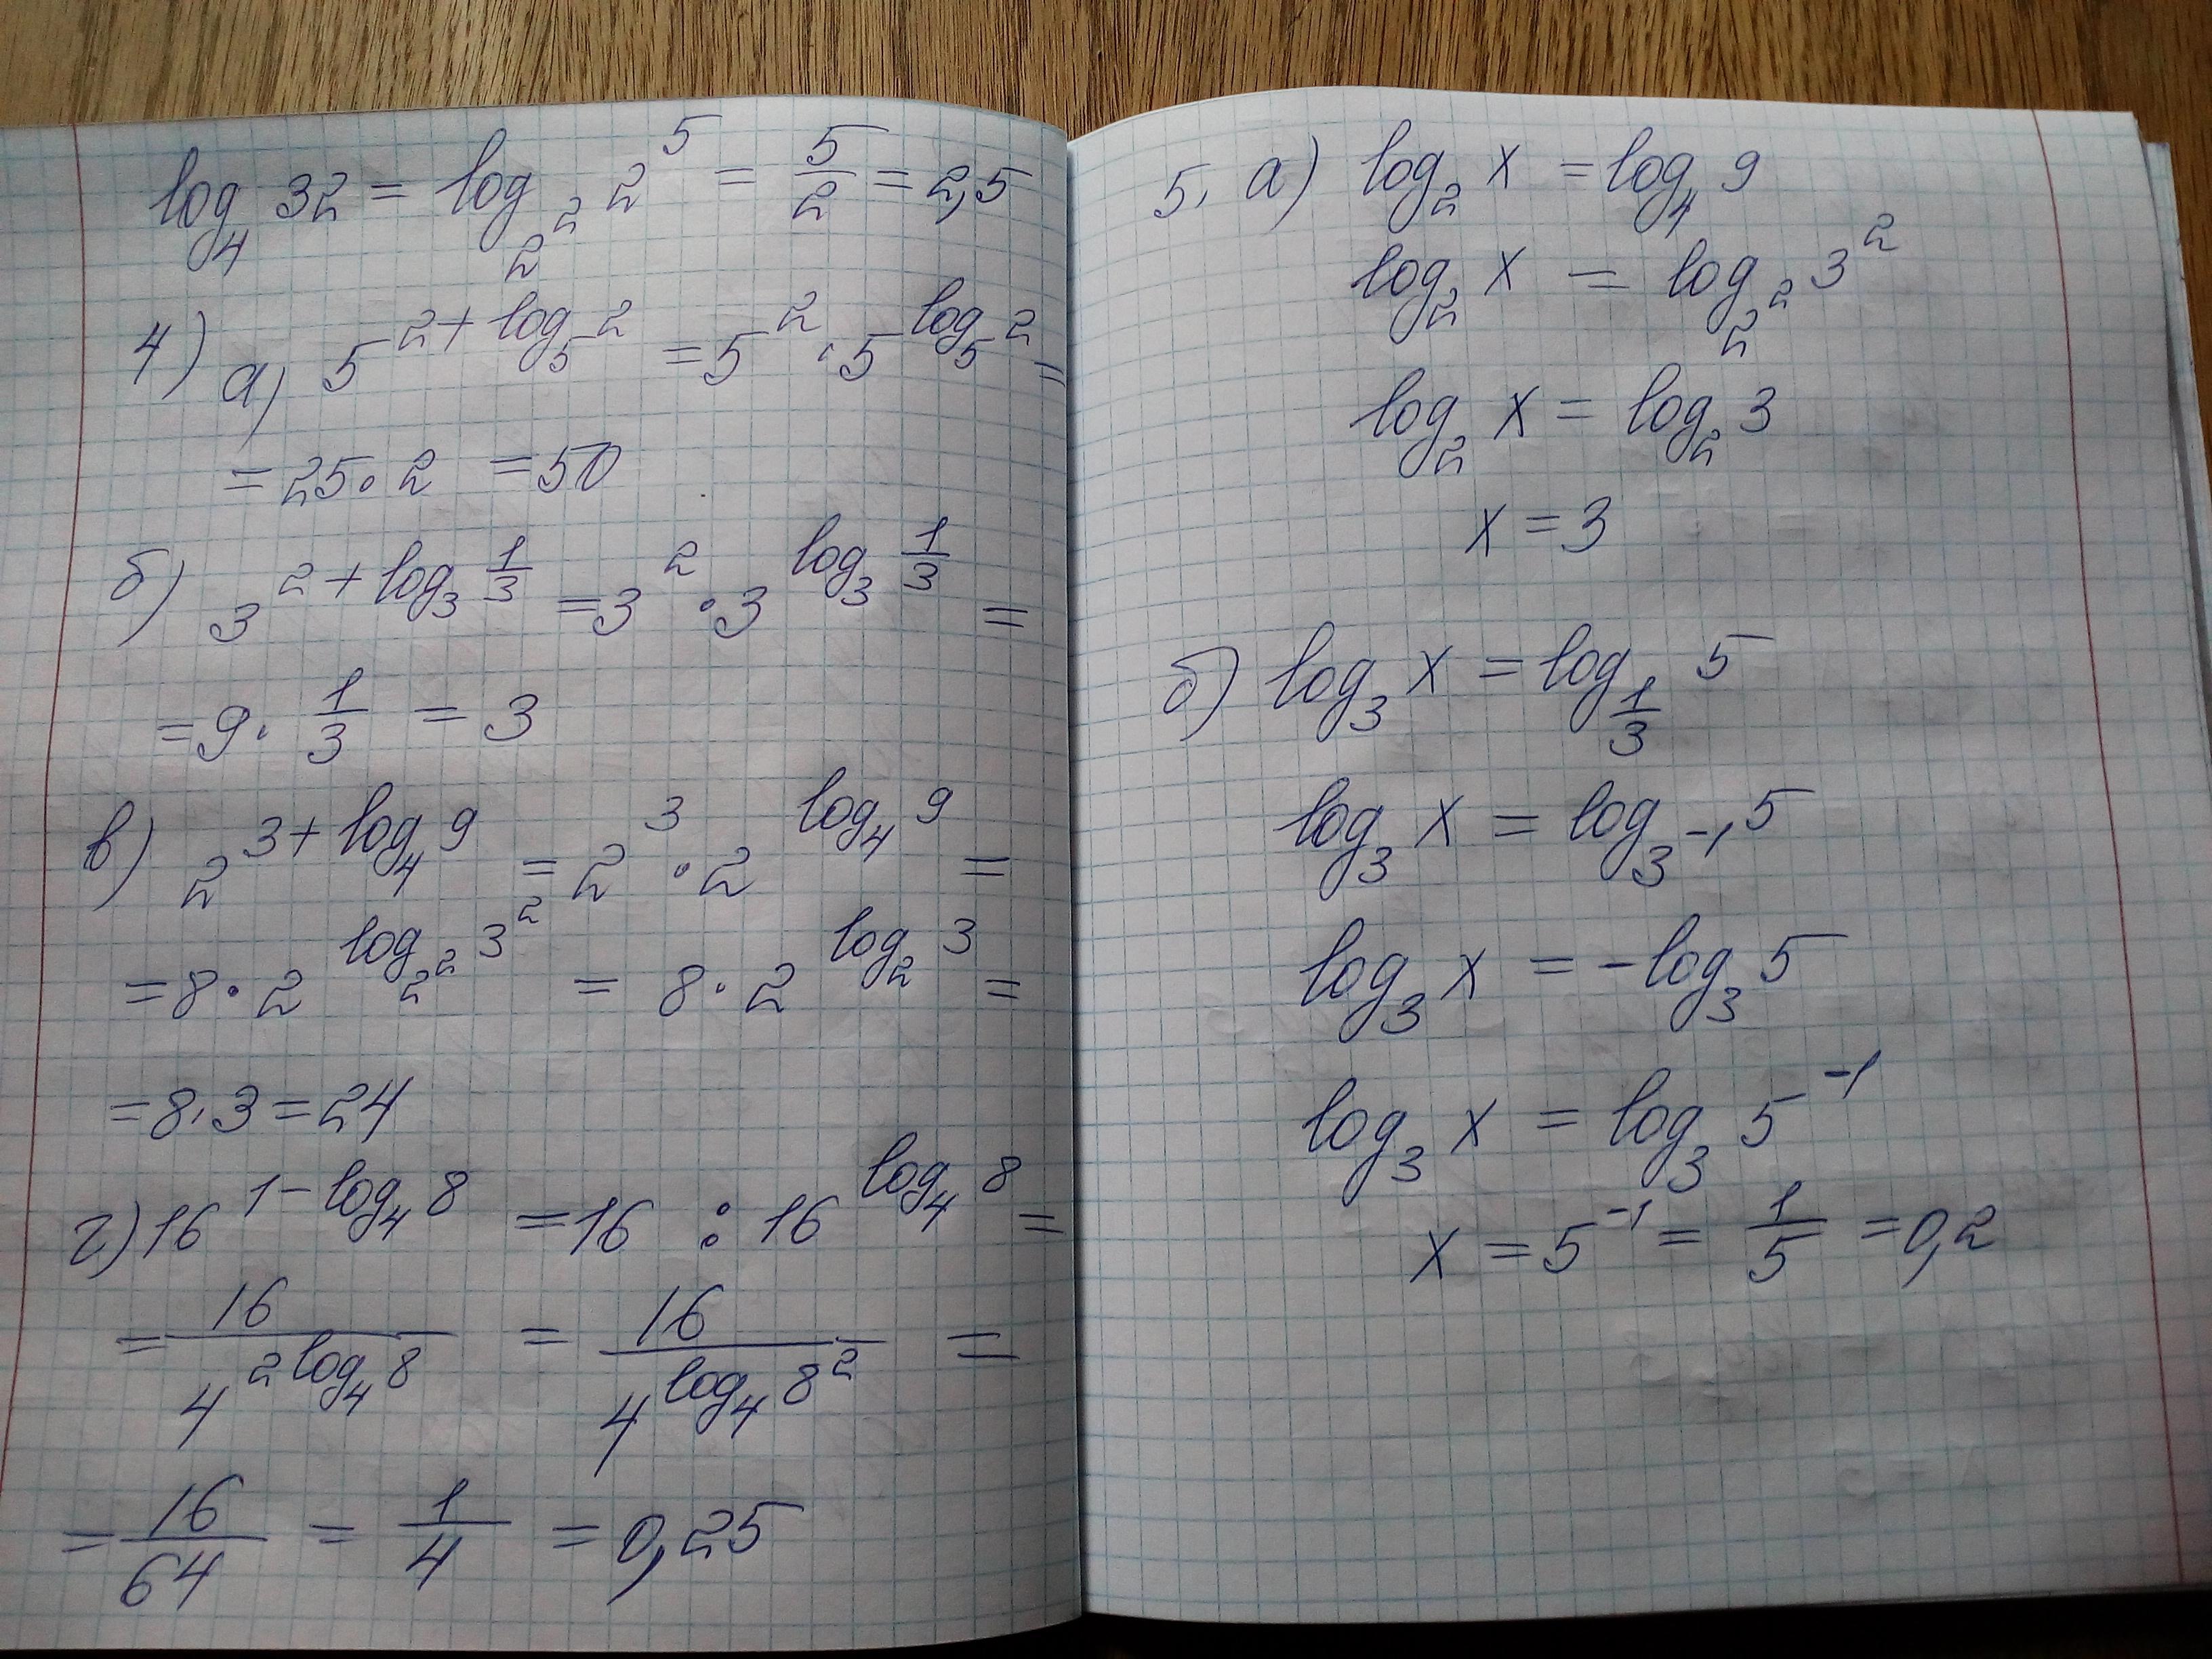 log₄ 32 = log_{2²} 2⁵ = 5/2 = 2,5
4) а) 5^{2+log₅2} = 5² · 5^{log₅2} =
= 25 · 2 = 50
б) 3^{2+log₃ 1/3} = 3² · 3^{log₃ 1/3} =
= 9 · 1/3 = 3
в) 2^{3+log₄9} = 2³ · 2^{log₄9} =
= 8 · 2^{log_{2²} 3²} = 8 · 2^{log₂3} =
= 8 · 3 = 24
г) 16^{1-log₄8} = 16 : 16^{log₄8} =
= 16/4^{2log₄8} = 16/4^{log₄8²} =
= 16/64 = 1/4 = 0,25
5, а) log₂ x = log₄ 9
log₂ x = log_{2²} 3²
log₂ x = log₂ 3
x = 3
б) log₃ x = log_{1/3} 5
log₃ x = log_{3⁻¹} 5
log₃ x = -log₃ 5
log₃ x = log₃ 5⁻¹
x = 5⁻¹ = 1/5 = 0,2